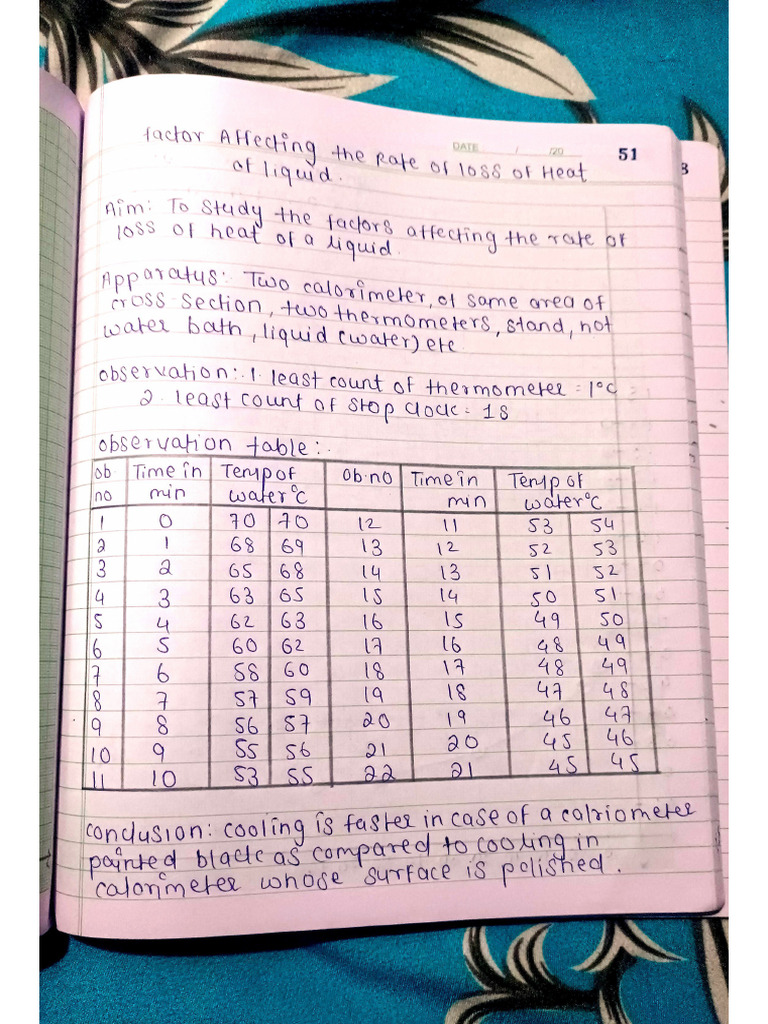 DATE / /20 51
8
factor Affecting the Rate of loss of Heat
of liquid.
Aim: To study the factors affecting the rate of
loss of heat of a liquid.
Apparatus: Two calorimeter, of same area of
cross section, two thermometers, stand, not
water bath, liquid (water) etc
observation: 1. least count of thermometer = 1°C
2. least count of stop clock = 1s
observation table:
ob no | Time in min | Temp of water°C | Ob.no | Time in min | Temp of water°C
1 0 70 70 12 11 53 54
2 1 68 69 13 12 52 53
3 2 65 68 14 13 51 52
4 3 63 65 15 14 50 51
5 4 62 63 16 15 49 50
6 5 60 62 17 16 48 49
7 6 58 60 18 17 48 49
8 7 57 59 19 18 47 48
9 8 56 57 20 19 46 47
10 9 55 56 21 20 45 46
11 10 53 55 22 21 45 45
conclusion: cooling is faster in case of a calriometer
painted black as compared to cooling in
calorimeter whose surface is polished.